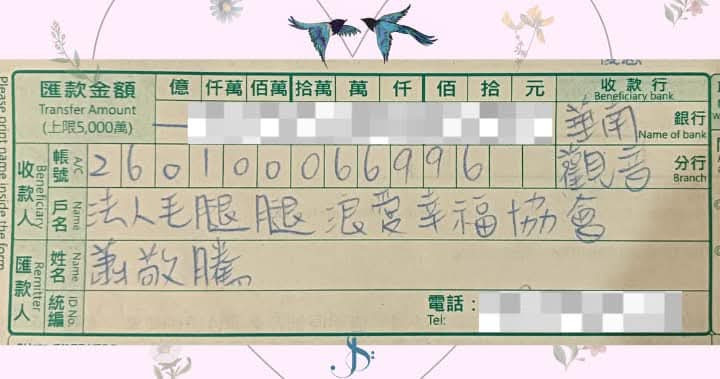 匯款金額 億 仟萬 佰萬 拾萬 萬 仟 佰 拾 元 收款行
Transfer Amount Beneficiary bank
(上限5,000萬) 華南 銀行
Name of bank
收款人 Beneficiary 帳號 A/C 260100066996 觀音 分行
Branch
戶名 Name 法人毛腿腿浪愛幸福協會
匯款人 Remitter 姓名 Name 蕭敬騰
統編 ID No. 電話:
Tel:
Please print name inside the form